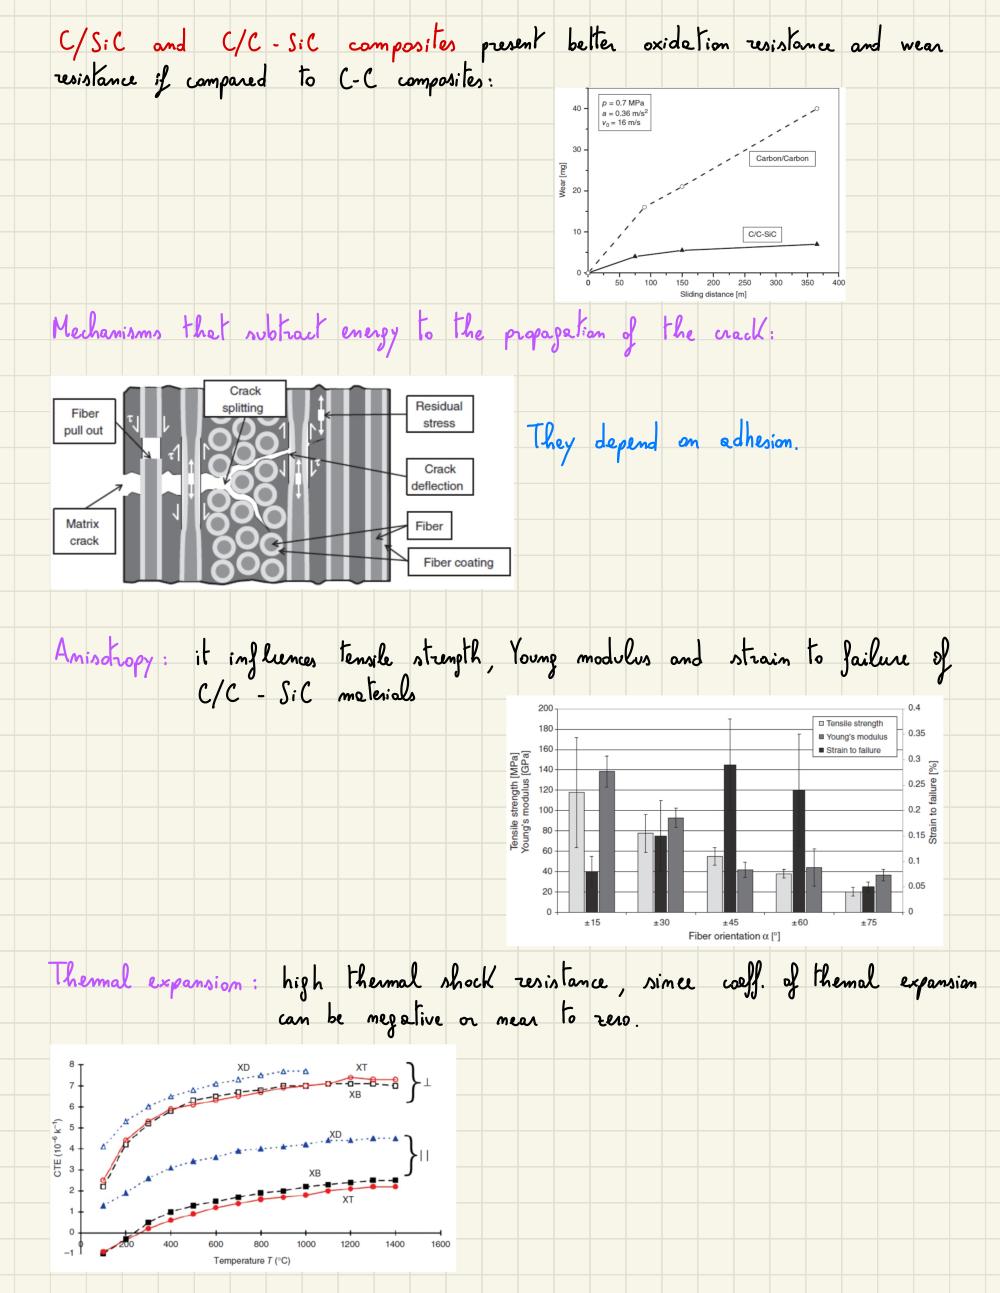 C/SiC and C/C - SiC composites present better oxidation resistance and wear
resistance if compared to C-C composites:
p = 0.7 MPa
a = 0.36 m/s²
v₀ = 16 m/s
Wear [mg]
40
30
20
10
0
Carbon/Carbon
C/C-SiC
0 50 100 150 200 250 300 350 400
Sliding distance [m]
Mechanisms that subtract energy to the propagation of the crack:
Crack
splitting
Fiber
pull out
Residual
stress
τ
τ
τ
Crack
deflection
Matrix
crack
Fiber
Fiber coating
They depend on adhesion.
Anisotropy: it influences tensile strength, Young modulus and strain to failure of
C/C - SiC materials
Tensile strength [MPa]
Young's modulus [GPa]
200
180
160
140
120
100
80
60
40
20
0
Tensile strength
Young's modulus
Strain to failure
0.4
0.35
0.3
0.25
0.2
0.15
0.1
0.05
0
Strain to failure [%]
±15 ±30 ±45 ±60 ±75
Fiber orientation α [°]
Thermal expansion: high thermal shock resistance, since coeff. of thermal expansion
can be negative or near to zero.
CTE (10⁻⁶ k⁻¹)
8
7
6
5
4
3
2
1
0
−1
XD XT
XB
⊥
XD
||
XB
XT
0 200 400 600 800 1000 1200 1400 1600
Temperature T (°C)